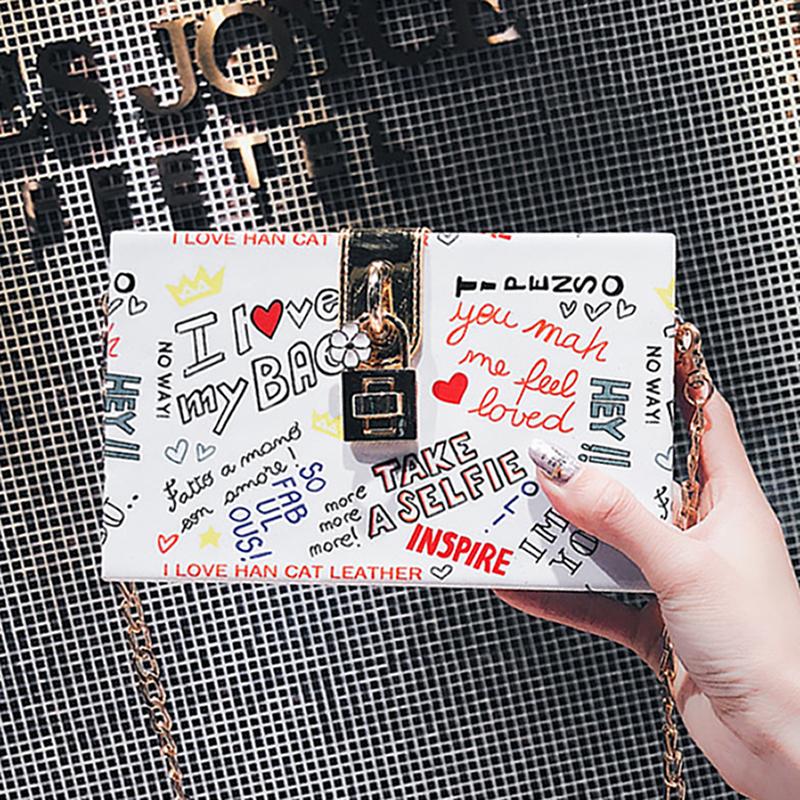 JOYCE
I LOVE HAN CAT
O
TI PENSO
I love
my BAG
you mah
me feel
loved
NO WAY!
HEY!!
HEY!!
NO WAY!
Fatto a mano
con amore!
SO
FAB
UL
OUS!
more
more
more!
TAKE
A SELFIE
INSPIRE
I LOVE HAN CAT LEATHER